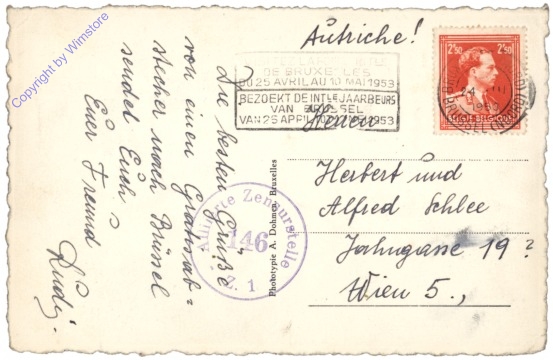 Copyright by Wimstore
Die besten Grüße
von einem Gratisab=
stecher nach Brüssel
sendet Euch
Euer Freund
Rudi.
Autriche!
DE BRUXELLES
DU 25 AVRIL AU 10 MAI 1953
BEZOEKT DE INTLE JAARBEURS
VAN BRUSSEL
VAN 25 APRIL TOT 10 MEI 1953
2F50 2F50
BELGIE-BELGIQUE
24 III
1953
Alliierte Zensurstelle
146
Z. 1
Phototypie A. Dohmen, Bruxelles
Herren
Herbert und
Alfred Schlee
Jahngasse 19?
Wien 5.,